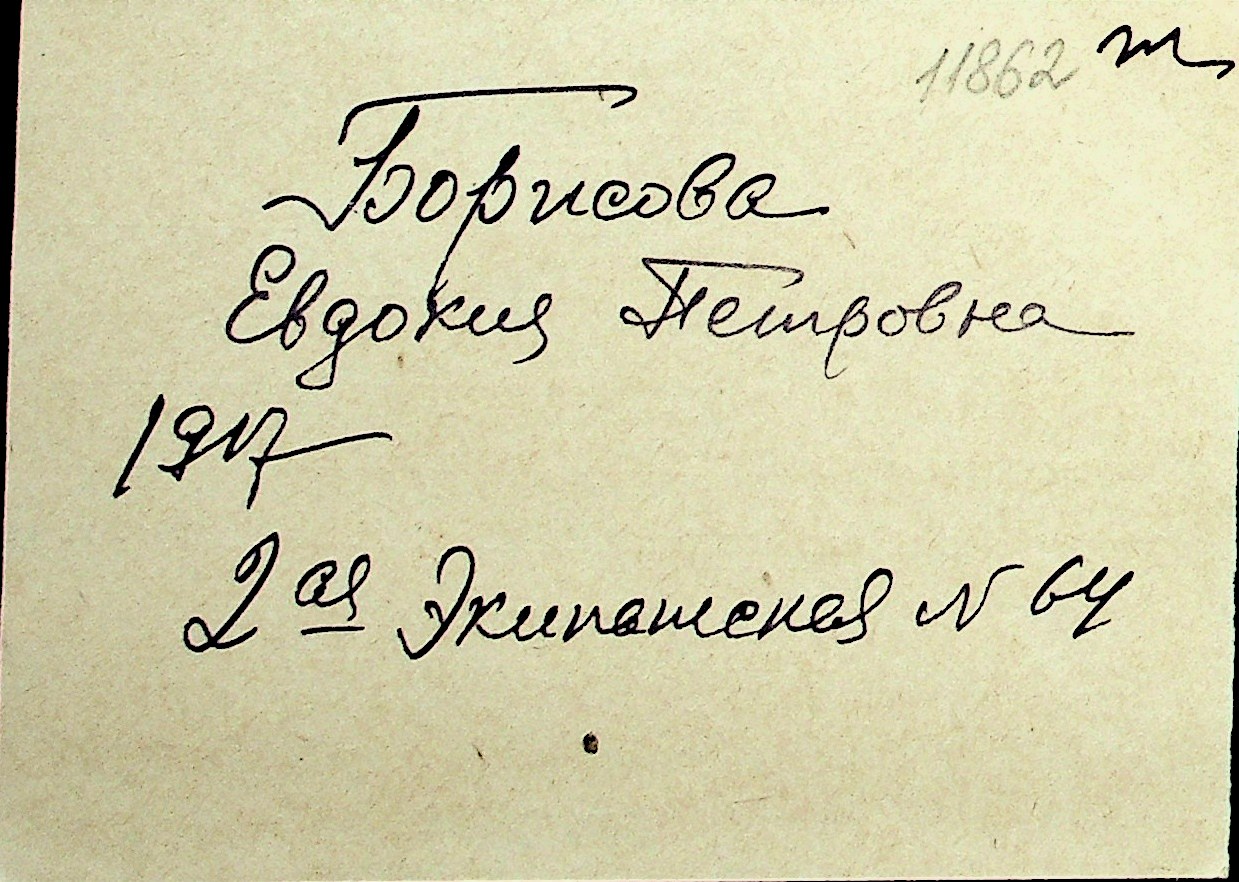 11862 т
Борисова
Евдокия Петровна
1917
2ая Экипашская N 64